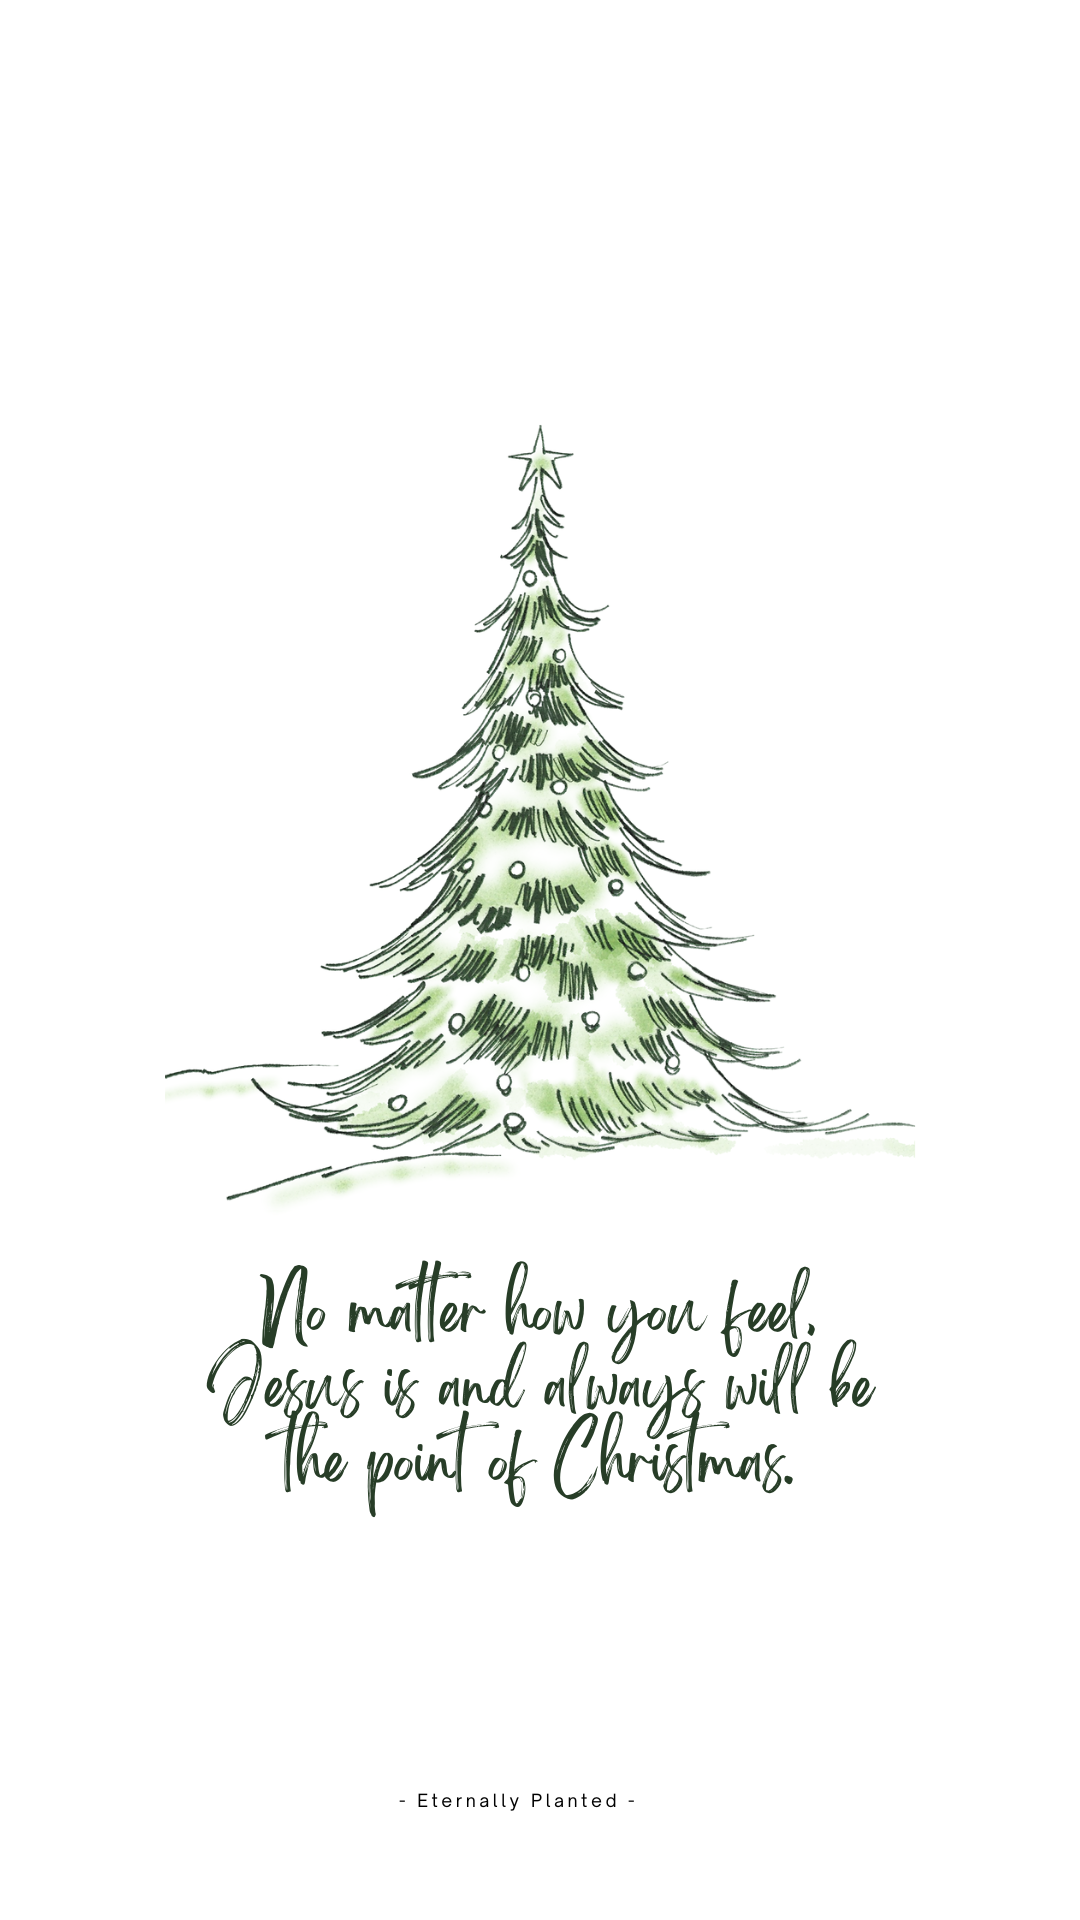 No matter how you feel,
Jesus is and always will be
the point of Christmas.
- Eternally Planted -